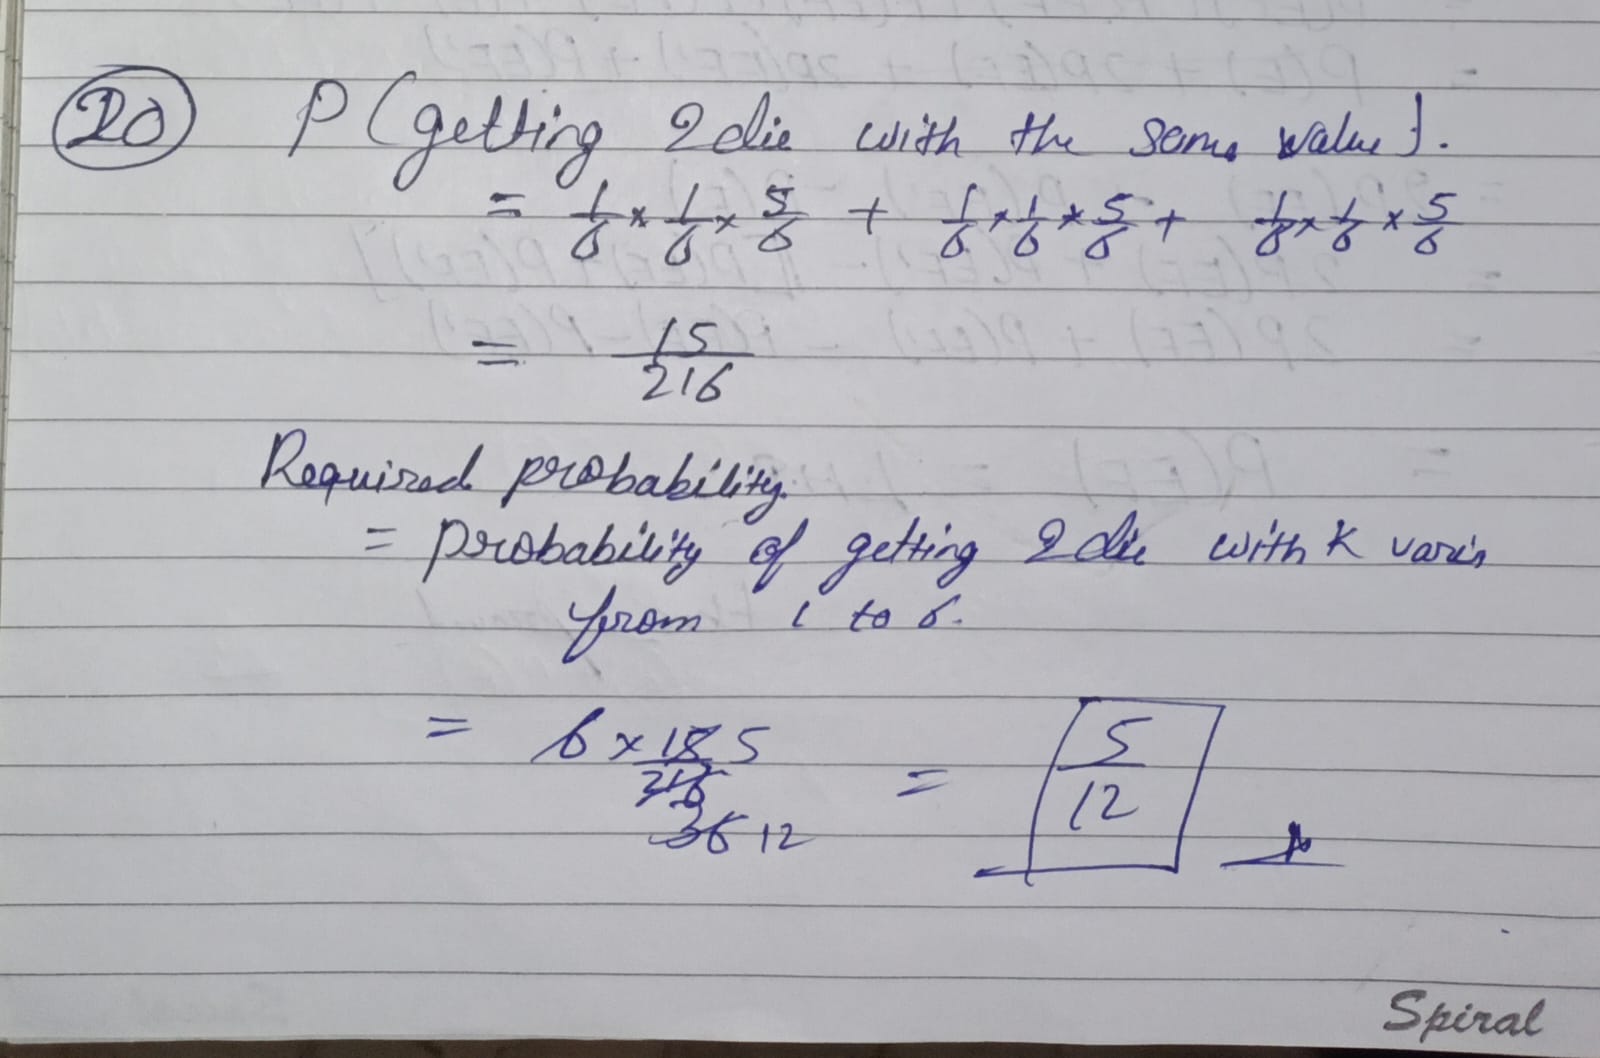 20 P(getting 2 die with the same value).
= 1/6 × 1/6 × 5/6 + 1/6 × 1/6 × 5/6 + 1/6 × 1/6 × 5/6
= 15/216
Required probability.
= probability of getting 2 die with K varies
from 1 to 6.
= 6 × 15 5 / 216 36 12 = 5/12
Spiral